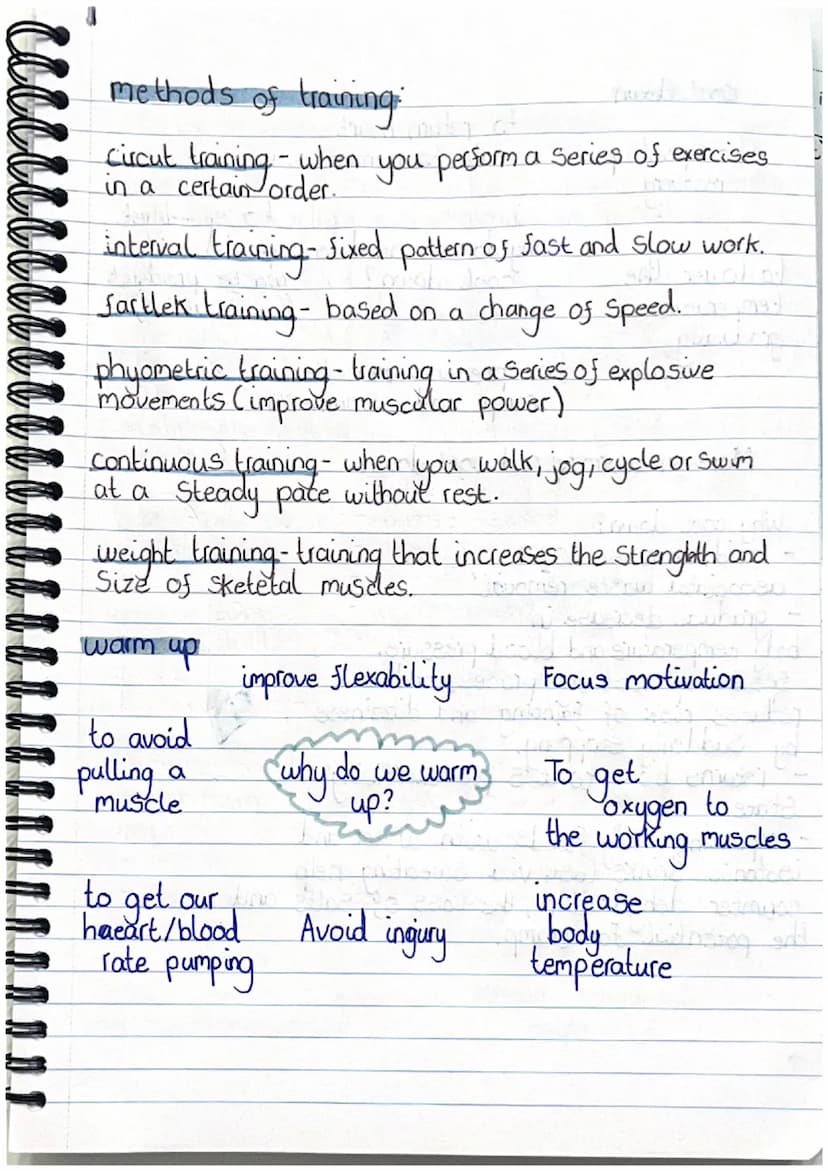 methods of training:
circut training - when you perform a series of exercises
in a certain order.
interval training - fixed pattern of fast and slow work.
fartlek training - based on a change of speed.
phyometric training - training in a series of explosive
movements (improve muscular power)
continuous training - when you walk, jog, cycle or swim
at a steady pace without rest.
weight training - training that increases the strenghth and
size of sketetal muscles.
warm up
improve flexability
Focus motivation
to avoid
pulling a
muscle
why do we warm
up?
To get
oxygen to
the working muscles
to get our
haeart/blood
rate pumping
Avoid ingury
increase
body
temperature